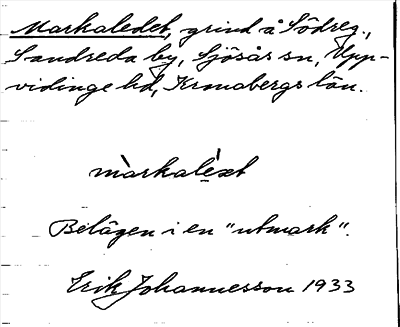 Markaledet, grind å Södreg.,
Sandreda by, Sjösås sn, Upp-
vidinge hd, Kronobergs län.
màrkalèet
Belägen i en "utmark".
Erik Johannesson 1933